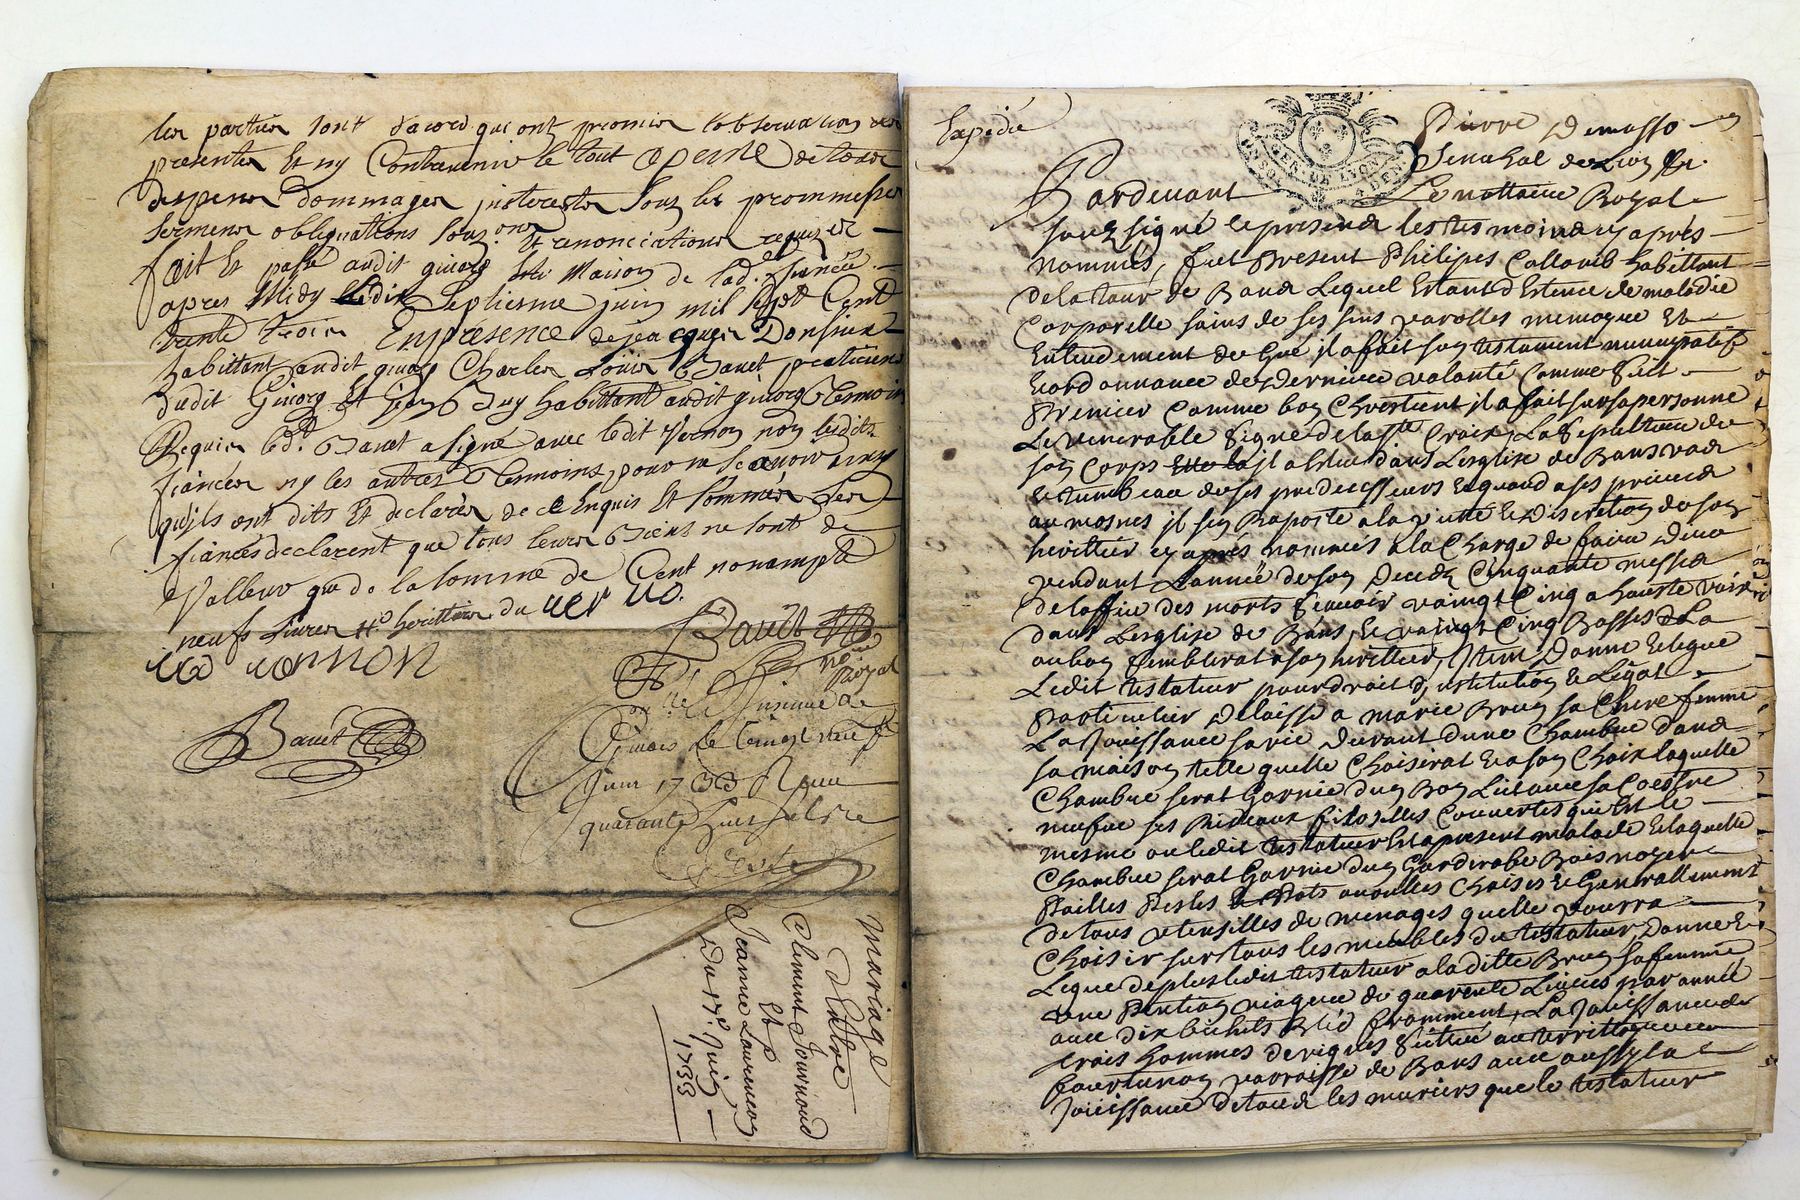 les parties sont d'acord qui ont promis l'observation des
presentes Et ny Contrevenir le tout a peine de tous
despens dommages interestes sous les prommesses
sermens obligations sous.ons Et renonciations requizes
fait Et passé audit givors maison de lad. fiancée
apres Midy le dix septiesme juin mil sept Cent
trante trois En presence de jeacques Donsieux
habittant audit givors Charles Louis Bauet praticien
dudit Givors Et jean habittant audit givors tesmoins
Requis led. Bauet a signé avec ledit Vernon non lesdits
fiancés ny les autres tesmoins pour ne scavoir ainsy
quils ont dits Et declarés de ce Enquis Et sommés les
fiancés declarent que tous leurs Biens ne sont de
Valleur que de la somme de Cent nonampte
neufs Livres
vernon
Bauet
no.re Royal
Givors le vingt neuf
juin 1733 Reçu
quarante huit sols
Bauet
mariage
d'Entre
Clement Jouvinoud
Et
Jeanne Laurencon
Du 17e. Juin
1733
Expedié
Pierre Demasso
Senechal de Lion
GEN. DE LYON
Pardevant Le nottaire Royal
souzsigné et presents les tesmoins cy après
nommés, fut Present Philipes Collomb habittant
de la tour de Bans Lequel Estant detenue de maladie
Corporelle sains de ses sens parolles memoyre Et
Entendement de Gré il a fait son testament nuncupatif
Et ordonnance de Derniere volonté Comme suit
Premier Comme bon Chrestient il a fait sur sa personne
Le venerable Signe de la ste Croix, La Sepulture de
son Corps il a Esleu dans L'esglise de Bans
Et tumbeau de ses predecesseurs Et quand a ses prieres
aumosnes il sen Raporte a la piette Et Discretion de son
herittier cy après nommés a la Charge de faire Dire
pendant L'année de son Deceds Cinquante messes
de loffice des morts scavoir vaingt Cinq a haute voix
dans L'esglise de Bans, Et vaingt Cinq Basses La
ou bon semblerat a son herittier, Item Donne Et legue
Ledit testateur pour droit d'institution Et Legat
Particulier Delaisse a marie Brun sa Chere femme
La Jouissance sa vie Durant dune Chambre dans
sa maison telle quelle Choisirat Et a son Choix laquelle
Chambre serat Garnie dun Bon Lit
neufue ses Rideaux Couvertes qui Est le
mesme ou ledit testateur Est a present malade Et laquelle
Chambre serat Garnie dun Garderobe Bois noyer
Pailles Pesles Pots Choises Et Generallement
de tous Utensilles de menages quelle pourra
Choisir sur tous les meubles du testateur Donne Et
Legue de plus ledit testateur a la ditte Brun sa femme
une Pention viagere de quarente Livres par année
avec dix bichets Bled fromment, La Jouissance de
trois hommes de vignes sittué au territtoyre
parroisse de Bans avec aussy la
Joüissance de tous les muriers que le testateur